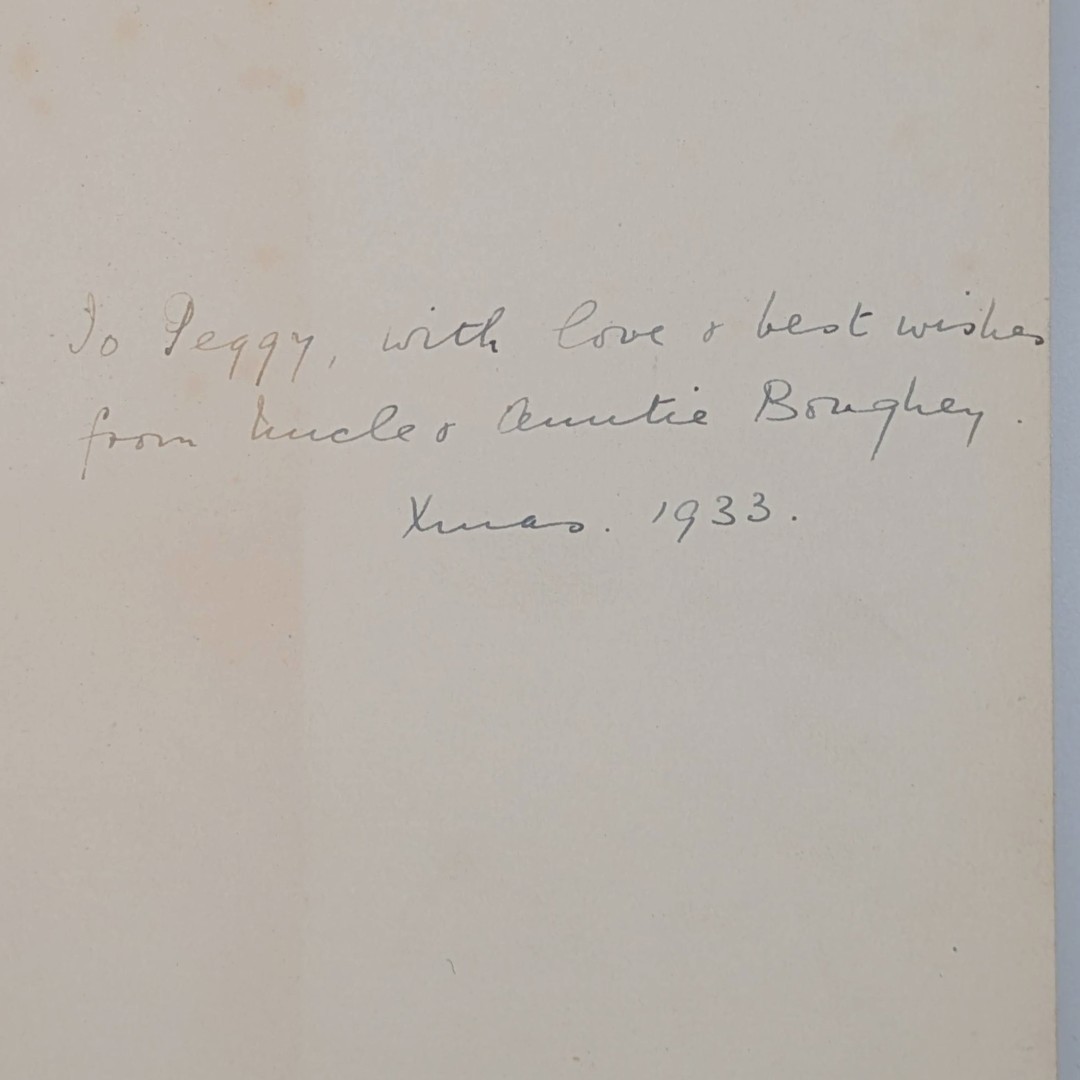 To Peggy, with love & best wishes
from Uncle & Auntie Boughey.
Xmas. 1933.